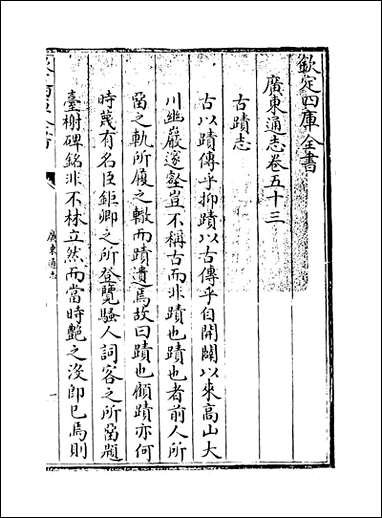 欽定四庫全書
廣東通志卷五十三
古蹟志
古以蹟傳乎抑蹟以古傳乎自開闢以來高山大
川幽巖邃壑豈不稱古而非蹟也蹟也者前人所
留之軌所履之轍而蹟遺焉故曰蹟也顧蹟亦何
時蔑有名臣鉅卿之所登覽騷人詞客之所留題
臺榭碑銘非不林立然而當時艷之沒即已焉則
廣東通志